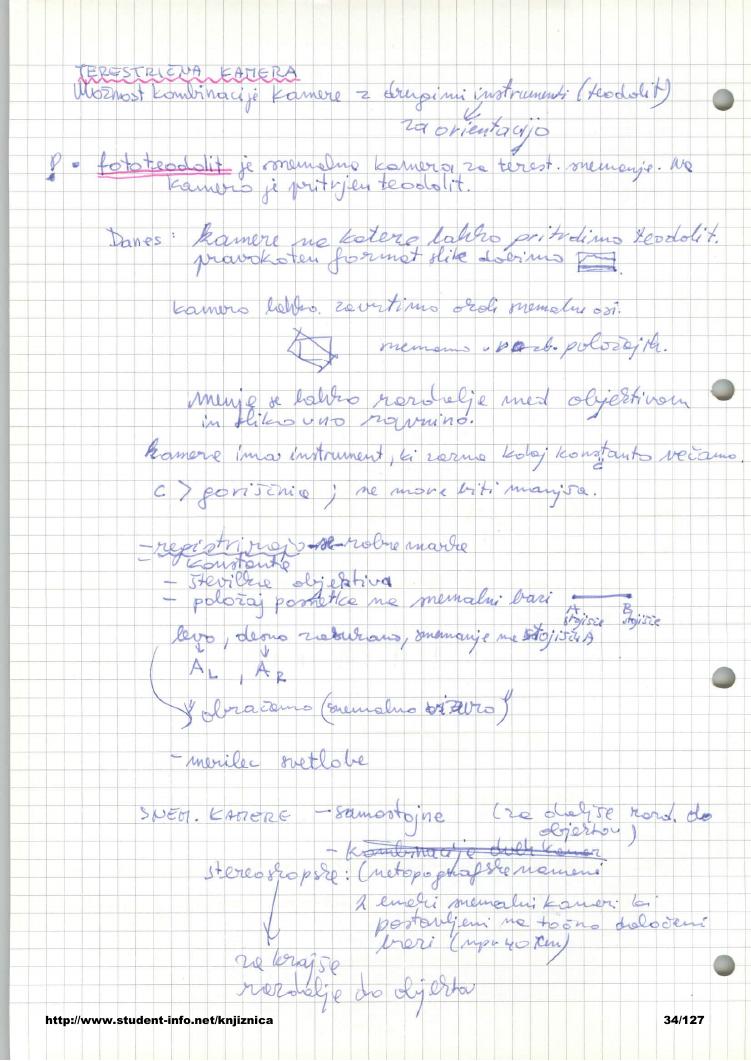 TERESTRIČNA KAMERA
Možnost kombinacije kamere z drugimi instrumenti (teodolit)
za orientacijo
! • fototeodolit je snemalna kamera za terest. snemanje. Na
kamero je pritrjen teodolit.
Danes: kamere na katere lahko pritrdimo teodolit.
pravokoten format slike dobimo
kamero lahko zavrtimo okoli snemalne osi.
snemamo v razb. položajih.
menja se lahko razdalje med objektivom
in slikovno ravnino.
kamere ima instrument, ki zazna kolaj konstanto večamo.
c
c > goriščnice ; ne more biti manjša.
- registrirajo se robne marke
- konstanta
- številke objektiva
- položaj posnetka na snemalni bazi
A B
stojišče stojišče
levo, desno zasukano, snemanje na stojišču A
A_L , A_R
obračamo (snemalno vizuro)
- merilec svetlobe
SNEM. KAMERE - samostojne (za daljše razd. do
objektov)
- kombinacije dveh kamer
stereoskopske: (netopografske nameni
2 enaki snemalni kameri
postavljeni na točno določeni
bazi (npr 40 cm)
za krajše
razdalje do objekta
http://www.student-info.net/knjiznica
34/127